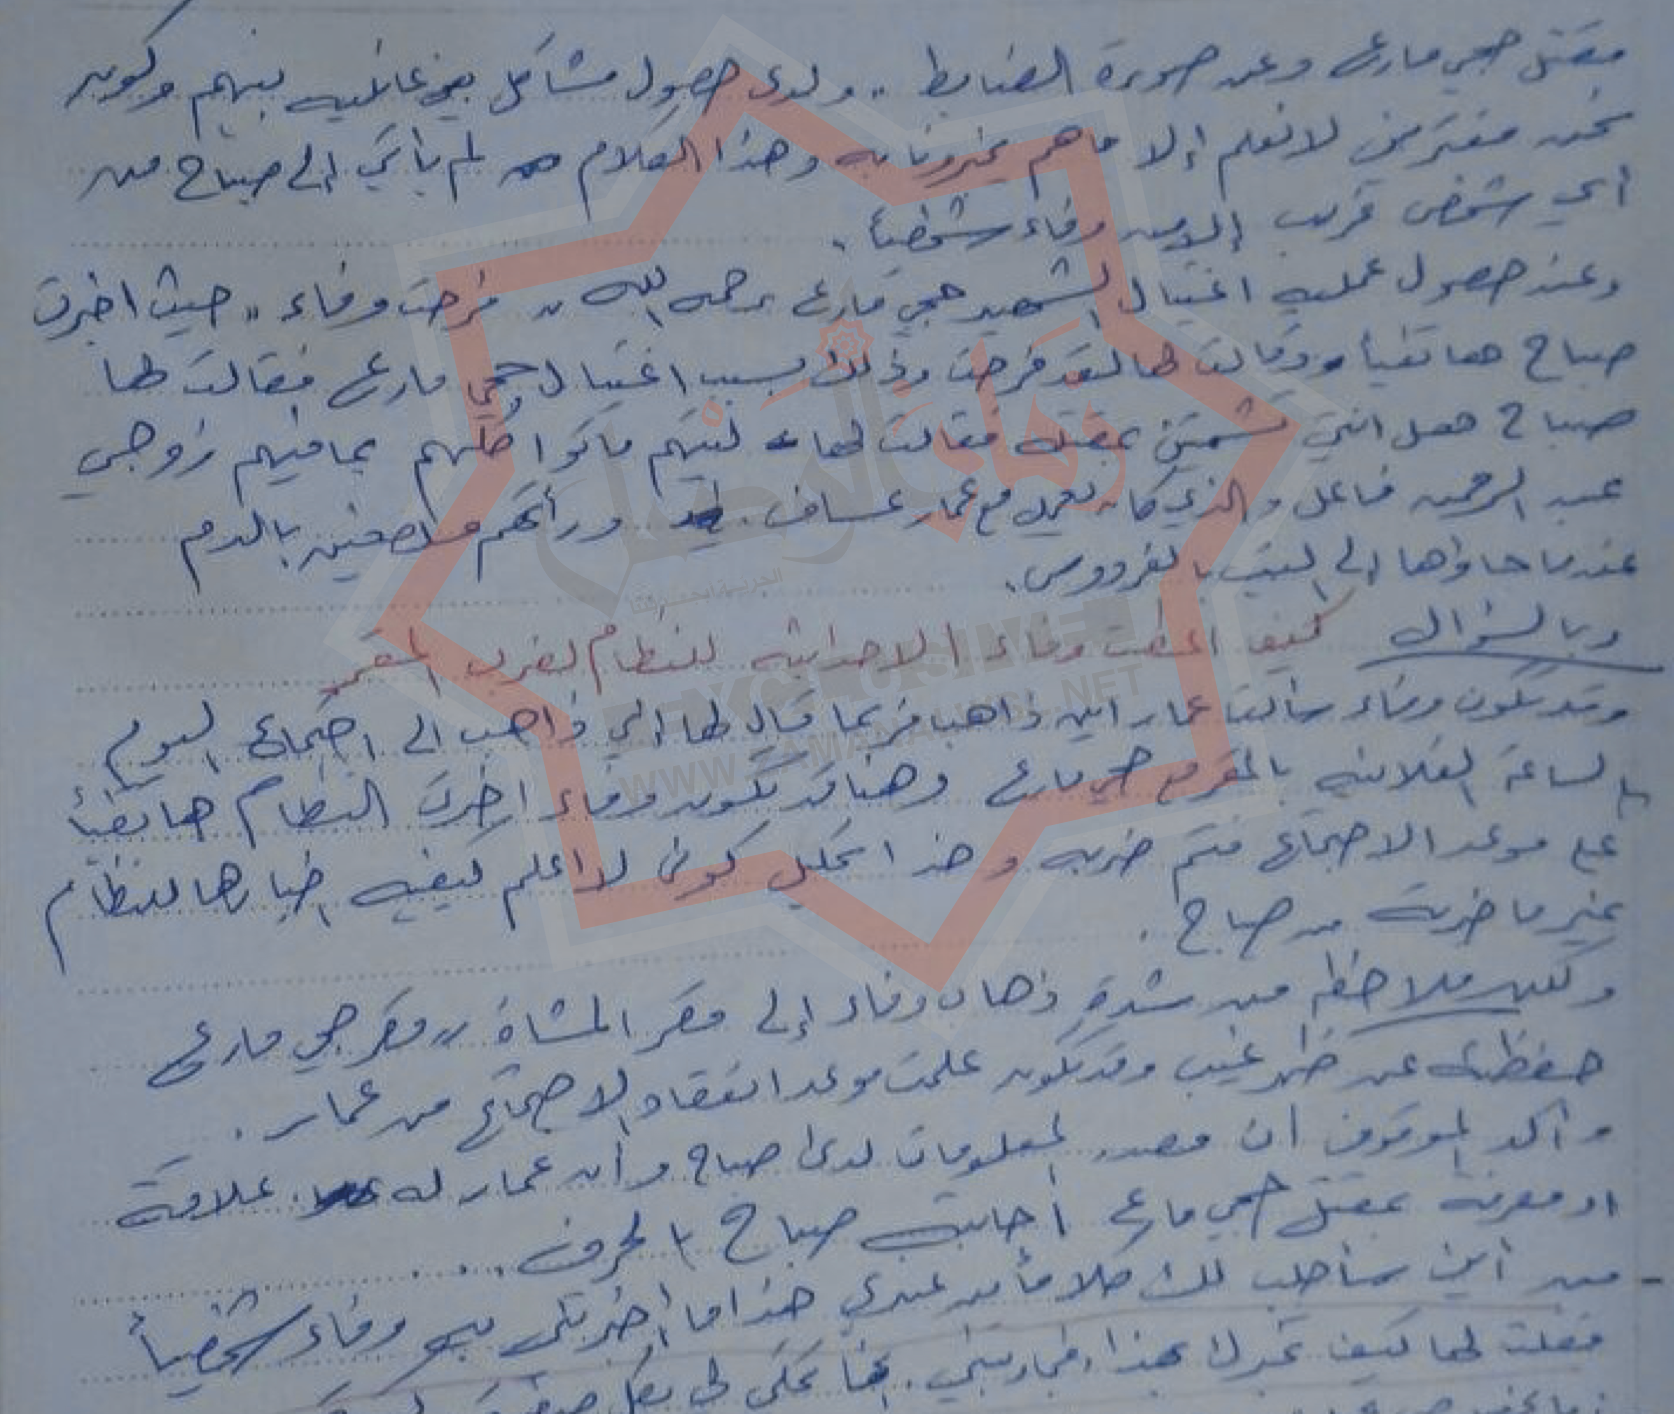 مقتل حجي مارع وعن صورة الضابط .. ولدى حصول مشاكل بين عائلتيه بينهم وكوننا
نحن مغتربين لا نعلم إلا ما هم يخبروننا به وهذا الكلام لم يأتي إلى صباح من
أي شخص قريب إلا من وفاء شخصياً .
وعند حصول عملية اغتيال الشهيد حجي مارع رحمه الله ،، فرحت وفاء ،، حيث اخبرت
صباح هاتفياً وقالت لها لقد فرحت وذلك بسبب اغتيال حجي مارع فقالت لها
صباح هل انتي تشمتين بمقتله فقالت لها ليتهم ماتوا كلهم بما فيهم زوجي
عبد الرحمن فاعل والذي كان يعمل مع عمار عساف . ورأتهم ملطخين بالدم
عندما جاؤوها إلى البيت بالفردوس .
وبالسؤال كيف اعطت وفاء الاحداثيه للنظام لضرب المقر
وقد تكون وفاء سألت عمار اين ذاهب فربما قال لها اني ذاهب الى اجتماع اليوم
بالساعة الفلانيه بالمقر مع حجي مارع وهنا قد تكون وفاء اخبرت النظام هاتفياً
على موعد الاجتماع فتم ضربه وهذا تحليل كوني لا اعلم كيفية اخبارها للنظام
غير ما خبرته من صباح .
ولكن ملاحظه من شدة ذهاب وفاء إلى مقر المشاة ،، مقر حجي مارع
حفظته عن ظهر غيب وقد تكون علمت موعد انعقاد الاجتماع من عمار .
وأكد الموقوف ان مصدر المعلومات لدى صباح وأن عمار له علاقة
او معرفة بمقتل حجي مارع أجابت صباح بالحرف ...
- من أين سأجلب لك كلاماً من عندي هذا ما أخبرتني به وفاء شخصياً
فقلت لها كيف تخبرك بهذا فجاوبتني . انها تحكي لي بكل
زمان الوصل
EXCLUSIVE
WWW.ZAMANALWSL.NET